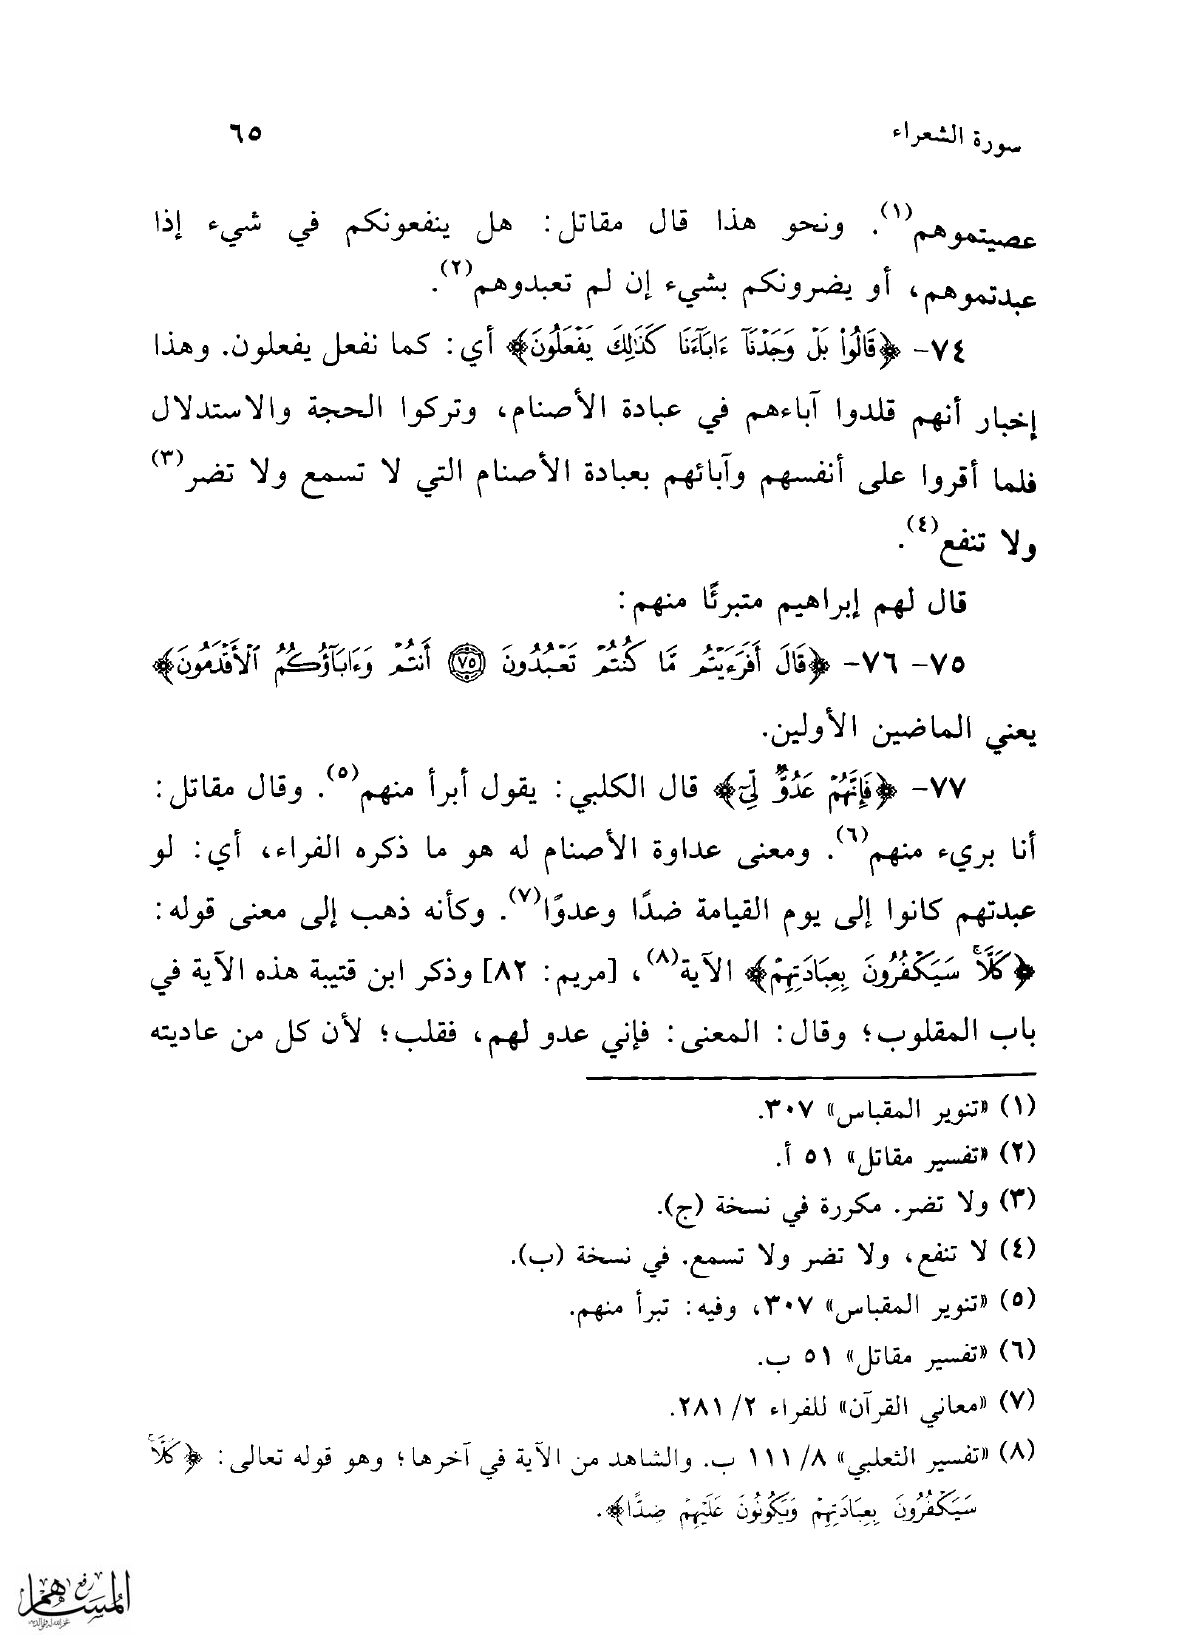 سورة الشعراء ٦٥
عصيتموهم(١). ونحو هذا قال مقاتل: هل ينفعونكم في شيء إذا
عبدتموهم، أو يضرونكم بشيء إن لم تعبدوهم(٢).
٧٤- ﴿قَالُوا۟ بَلْ وَجَدْنَآ ءَابَآءَنَا كَذَٰلِكَ يَفْعَلُونَ﴾ أي: كما نفعل يفعلون. وهذا
إخبار أنهم قلدوا آباءهم في عبادة الأصنام، وتركوا الحجة والاستدلال
فلما أقروا على أنفسهم وآبائهم بعبادة الأصنام التي لا تسمع ولا تضر(٣)
ولا تنفع(٤).
قال لهم إبراهيم متبرئًا منهم:
٧٥- ٧٦- ﴿قَالَ أَفَرَءَيْتُم مَّا كُنتُمْ تَعْبُدُونَ ٧٥ أَنتُمْ وَءَابَآؤُكُمُ ٱلْأَقْدَمُونَ﴾
يعني الماضين الأولين.
٧٧- ﴿فَإِنَّهُمْ عَدُوٌّ لِّىٓ﴾ قال الكلبي: يقول أبرأ منهم(٥). وقال مقاتل:
أنا بريء منهم(٦). ومعنى عداوة الأصنام له هو ما ذكره الفراء، أي: لو
عبدتهم كانوا إلى يوم القيامة ضدًا وعدوًا(٧). وكأنه ذهب إلى معنى قوله:
﴿كَلَّا ۚ سَيَكْفُرُونَ بِعِبَادَتِهِمْ﴾ الآية(٨)، [مريم: ٨٢] وذكر ابن قتيبة هذه الآية في
باب المقلوب؛ وقال: المعنى: فإني عدو لهم، فقلب؛ لأن كل من عاديته
(١) «تنوير المقباس» ٣٠٧.
(٢) «تفسير مقاتل» ٥١ أ.
(٣) ولا تضر. مكررة في نسخة (ج).
(٤) لا تنفع، ولا تضر ولا تسمع. في نسخة (ب).
(٥) «تنوير المقباس» ٣٠٧، وفيه: تبرأ منهم.
(٦) «تفسير مقاتل» ٥١ ب.
(٧) «معاني القرآن» للفراء ٢/ ٢٨١.
(٨) «تفسير الثعلبي» ٨/ ١١١ ب. والشاهد من الآية في آخرها؛ وهو قوله تعالى: ﴿كَلَّا ۚ
سَيَكْفُرُونَ بِعِبَادَتِهِمْ وَيَكُونُونَ عَلَيْهِمْ ضِدًّا﴾.